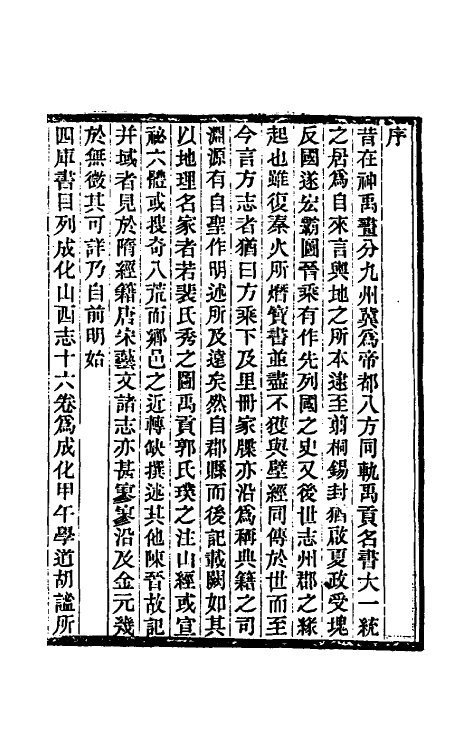 序
昔在神禹畫分九州冀為帝都八方同軌禹貢名書大一統
之居為自來言輿地之所本逮至剪桐錫封猶啟夏政受塊
反國遂宏霸圖晉乘有作先列國之史又後世志州郡之緣
起也雖復秦火所熸寶書並盡不獲與壁經同傳於世而至
今言方志者猶曰方乘下及里冊家牒亦沿為稱典籍之司
淵源有自聖作明述所及遠矣然自郡縣而後記載闕如其
以地理名家者若裴氏秀之圖禹貢郭氏璞之注山經或宣
祕六體或搜奇八荒而鄉邑之近轉缺撰述其他陳晉故記
并域者見於隋經籍唐宋藝文諸志亦甚寥寥沿及金元幾
於無徵其可詳乃自前明始
四庫書目列成化山西志十六卷為成化甲午學道胡謐所